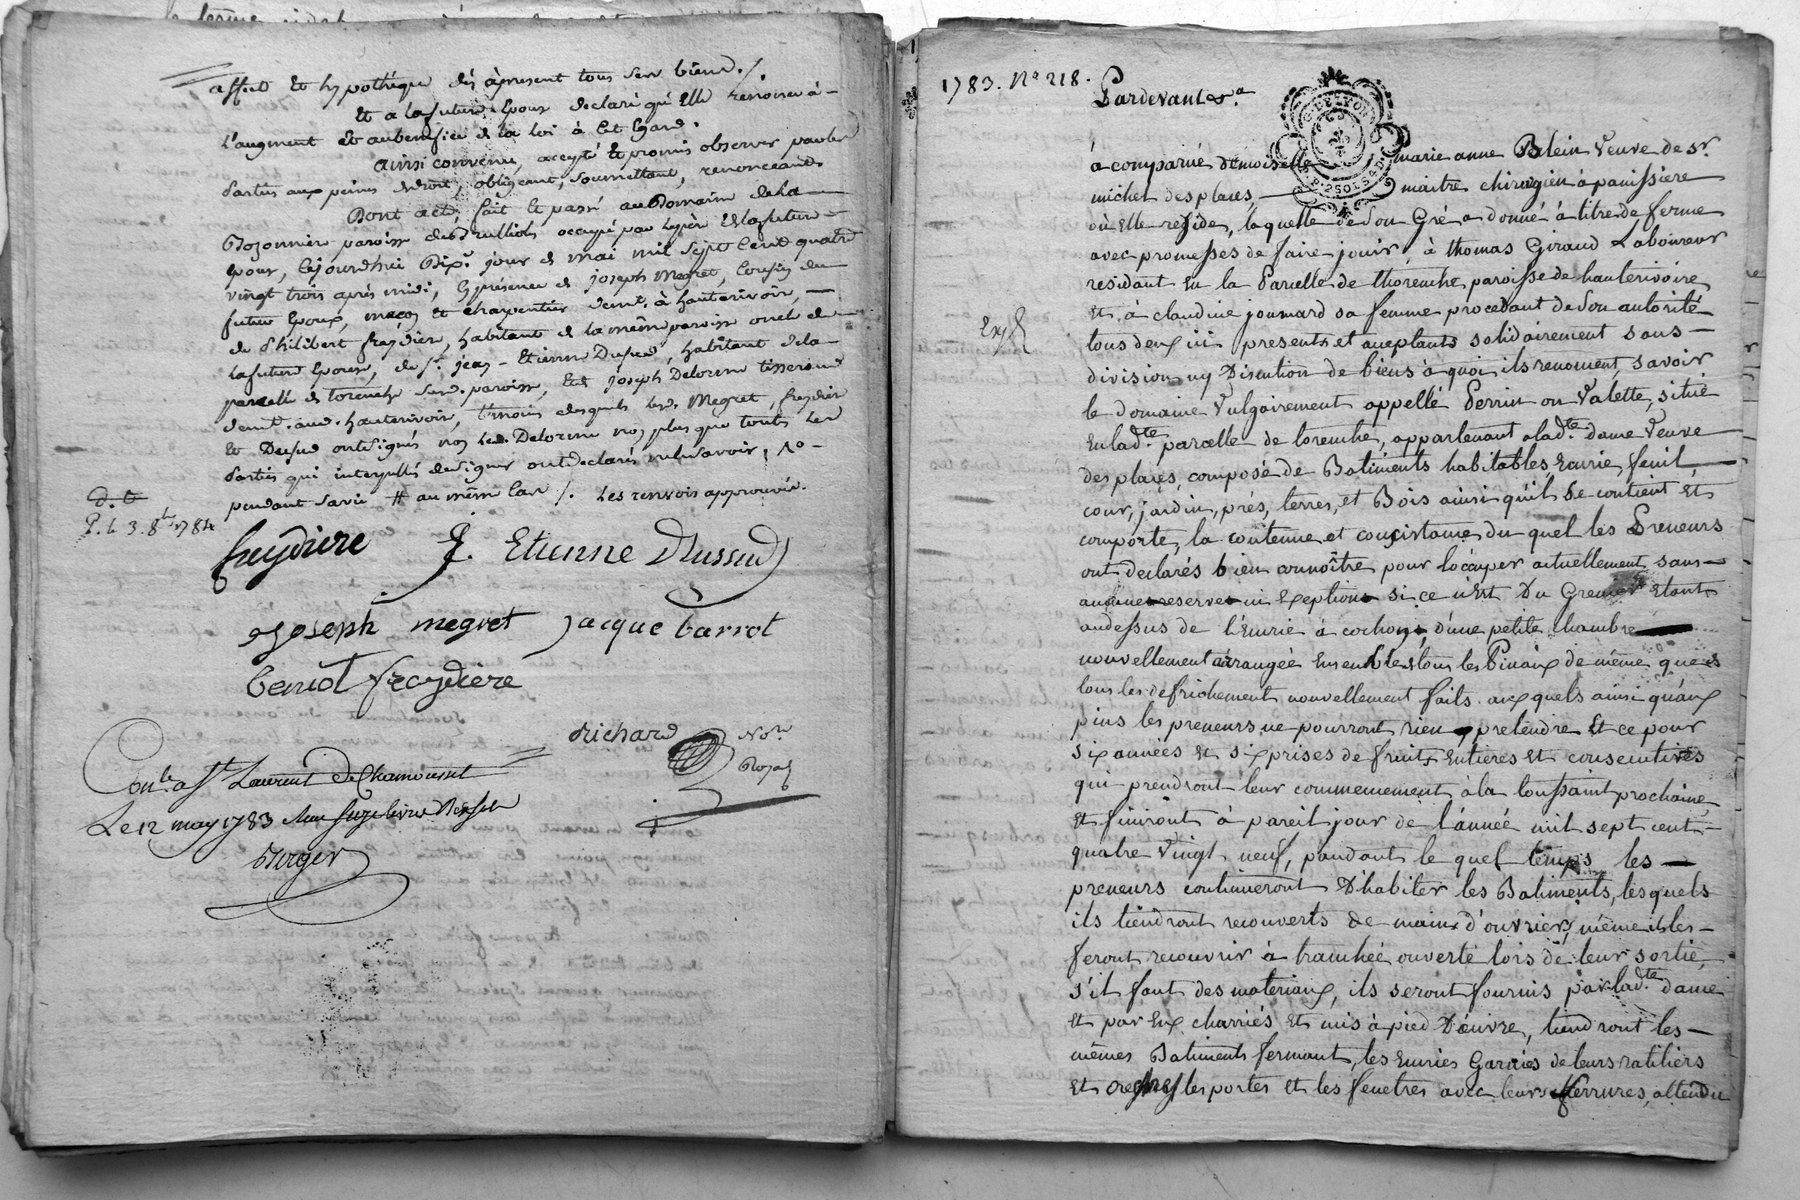 affect et hypothéque dés àpresent tous ses biens ./.
Et a la future Epouse declaré qu'Elle renonce à
l'augment Et au benefice de la loi à Cet Egard.
Ainsi convenu, accepté Et promis observer par les
Parties aux peines de droit, obligeant, soumettant, renonceants
Dont acte, fait Et passé au Domaine de la
paroisse des occupé par le pere de la future
Epouse, cejourdhui Dix.e jour de mai mil Sept Cent quatre
vingt trois aprés midi, En presence de joseph Megret, Cousin du
futur Epoux, maçon et charpentier demt. à hauterivoire,
de Philibert freydiere, habitant de la même paroisse oncle de
la future Epouse, de Sr. jean-Etienne Dussud, habitant de la
parcelle de torenche Susd. paroisse, Et de joseph Delorme tisserand
demt. aud. hauterivoire, témoins desquels lesd. Megret, freydiere
Et Dussud ont Signés non led. Delorme non plus que toutes les
Parties qui interpellés de Signer ont declarés ne le Savoir,
pendant Sa vie # au même Cas /. Les renvois approuvés.
P. 1. 3. 8bre 1784
freydiere J. Etienne Dussud
Joseph megret jacque barrot
benoit freydiere
Richard Nore.
Royal
Con.le a St. Laurent de Chamousset
Le 12 may 1783
Burger
1783. No 218.
Pardevant &.a
Exp.
à comparüe demoiselle marie anne Blein Veuve de Sr.
michel desplaces, maitre chirugien à panissiere
où Elle reside, laquelle de son Gré a donné à titre de ferme
avec promesses de faire jouir, à thomas Giraud Laboureur
residant En la Parcelle de thorenche paroisse de hauterivoire
Et à claudine joumard sa femme procedant de son autorité
tous deux ici presents et acceptants solidairement sans
division ny Discution de biens à quoi ils renoncent, savoir
le domaine Vulgairement appellé Perrin ou Valette, situé
En lad.te parcelle de torenche, appartenant a lad.te dame Veuve
desplaces, composé de Batiments habitables, Ecurie, fenil,
cour, jardin, prés, terres, et Bois ainsi qu'il se contient Et
comporte, la contenue et consistance du quel les Preneurs
ont declarés bien connoître pour l'ocuper actuellement sans
aucunes reserves ni Exeptions si ce n'Est Du Grenier Etant
audessus de l'Ecurie à cochons, d'une petite chambre
nouvellement arrangée Ensemble tous les Pinaix de même que
tous les defrichement nouvellement faits auxquels ainsi qu'aux
pins les preneurs ne pourront rien pretendre Et ce pour
six années Et six prises de fruits Entieres Et consecutives
qui prendront leur commencement à la toussaint prochaine,
Et finiront à pareil jour de l'année mil sept cent
quatre Vingt neuf, pandant le quel temps les
preneurs continueront D'habiter les Batiments, lesquels
ils tiendront recouverts de main d'ouvrier, même ils les
feront recouvrir à tranchée ouverte lors de leur sortie,
s'il faut des materiaux, ils seront fournis par lad.te dame
Et par Eux charriés Et mis à pied D'œuvre, tiendront les
mêmes Batiments fermant, les Ecuries Garnies de leurs ratiliers
Et creches les portes Et les fenetres avec leurs ferrures, attendu